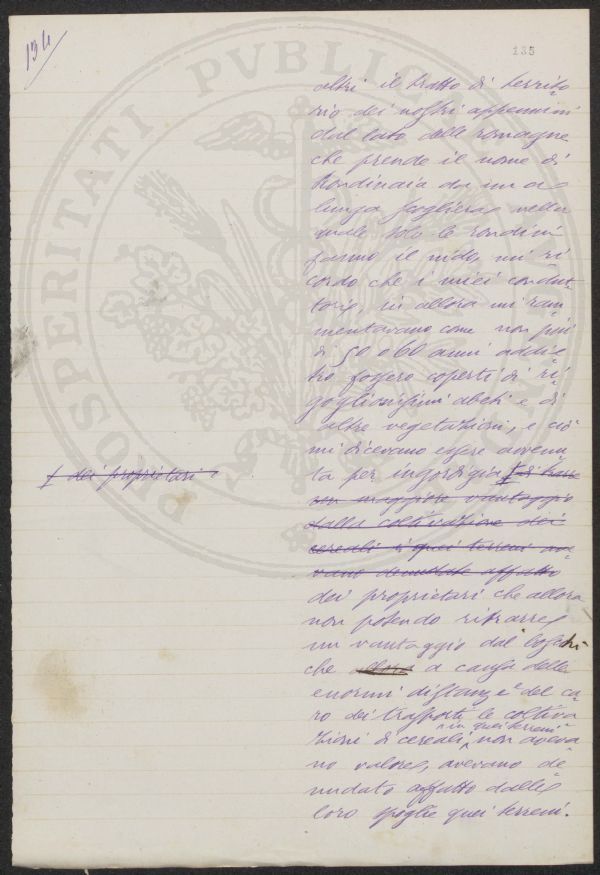 134
135
altri il tratto di territo
rio dei nostri appennini
dal lato delle romagne
che prende il nome di
Rondinaia da una
lunga scogliera nella
quale solo le rondini
fanno il nido, mi ri
cordo che i miei condut
tori, sin allora mi ram
mentavano come non più
di 50 o 60 anni addie
tro fossero coperti di ri
gogliosissimi abeti e di
altre vegetazioni, e ciò
mi dicevano essere avvenu
ta per ingordigia di trarre
un maggiore vantaggio
dalla coltivazione dei
cereali i quei terreni ave
vano denudate affatto
dei proprietari
dei proprietari che allora
non potendo ritrarre
un vantaggio dai boschi
che allora a causa delle
enormi distanze e del ca
ro dei trasporti le coltiva
zioni di cereali, in quei terreni non aveva
no valore, avevano de
nudato affatto dalle
loro spoglie quei terreni.
PROSPERITATI PVBLICAE